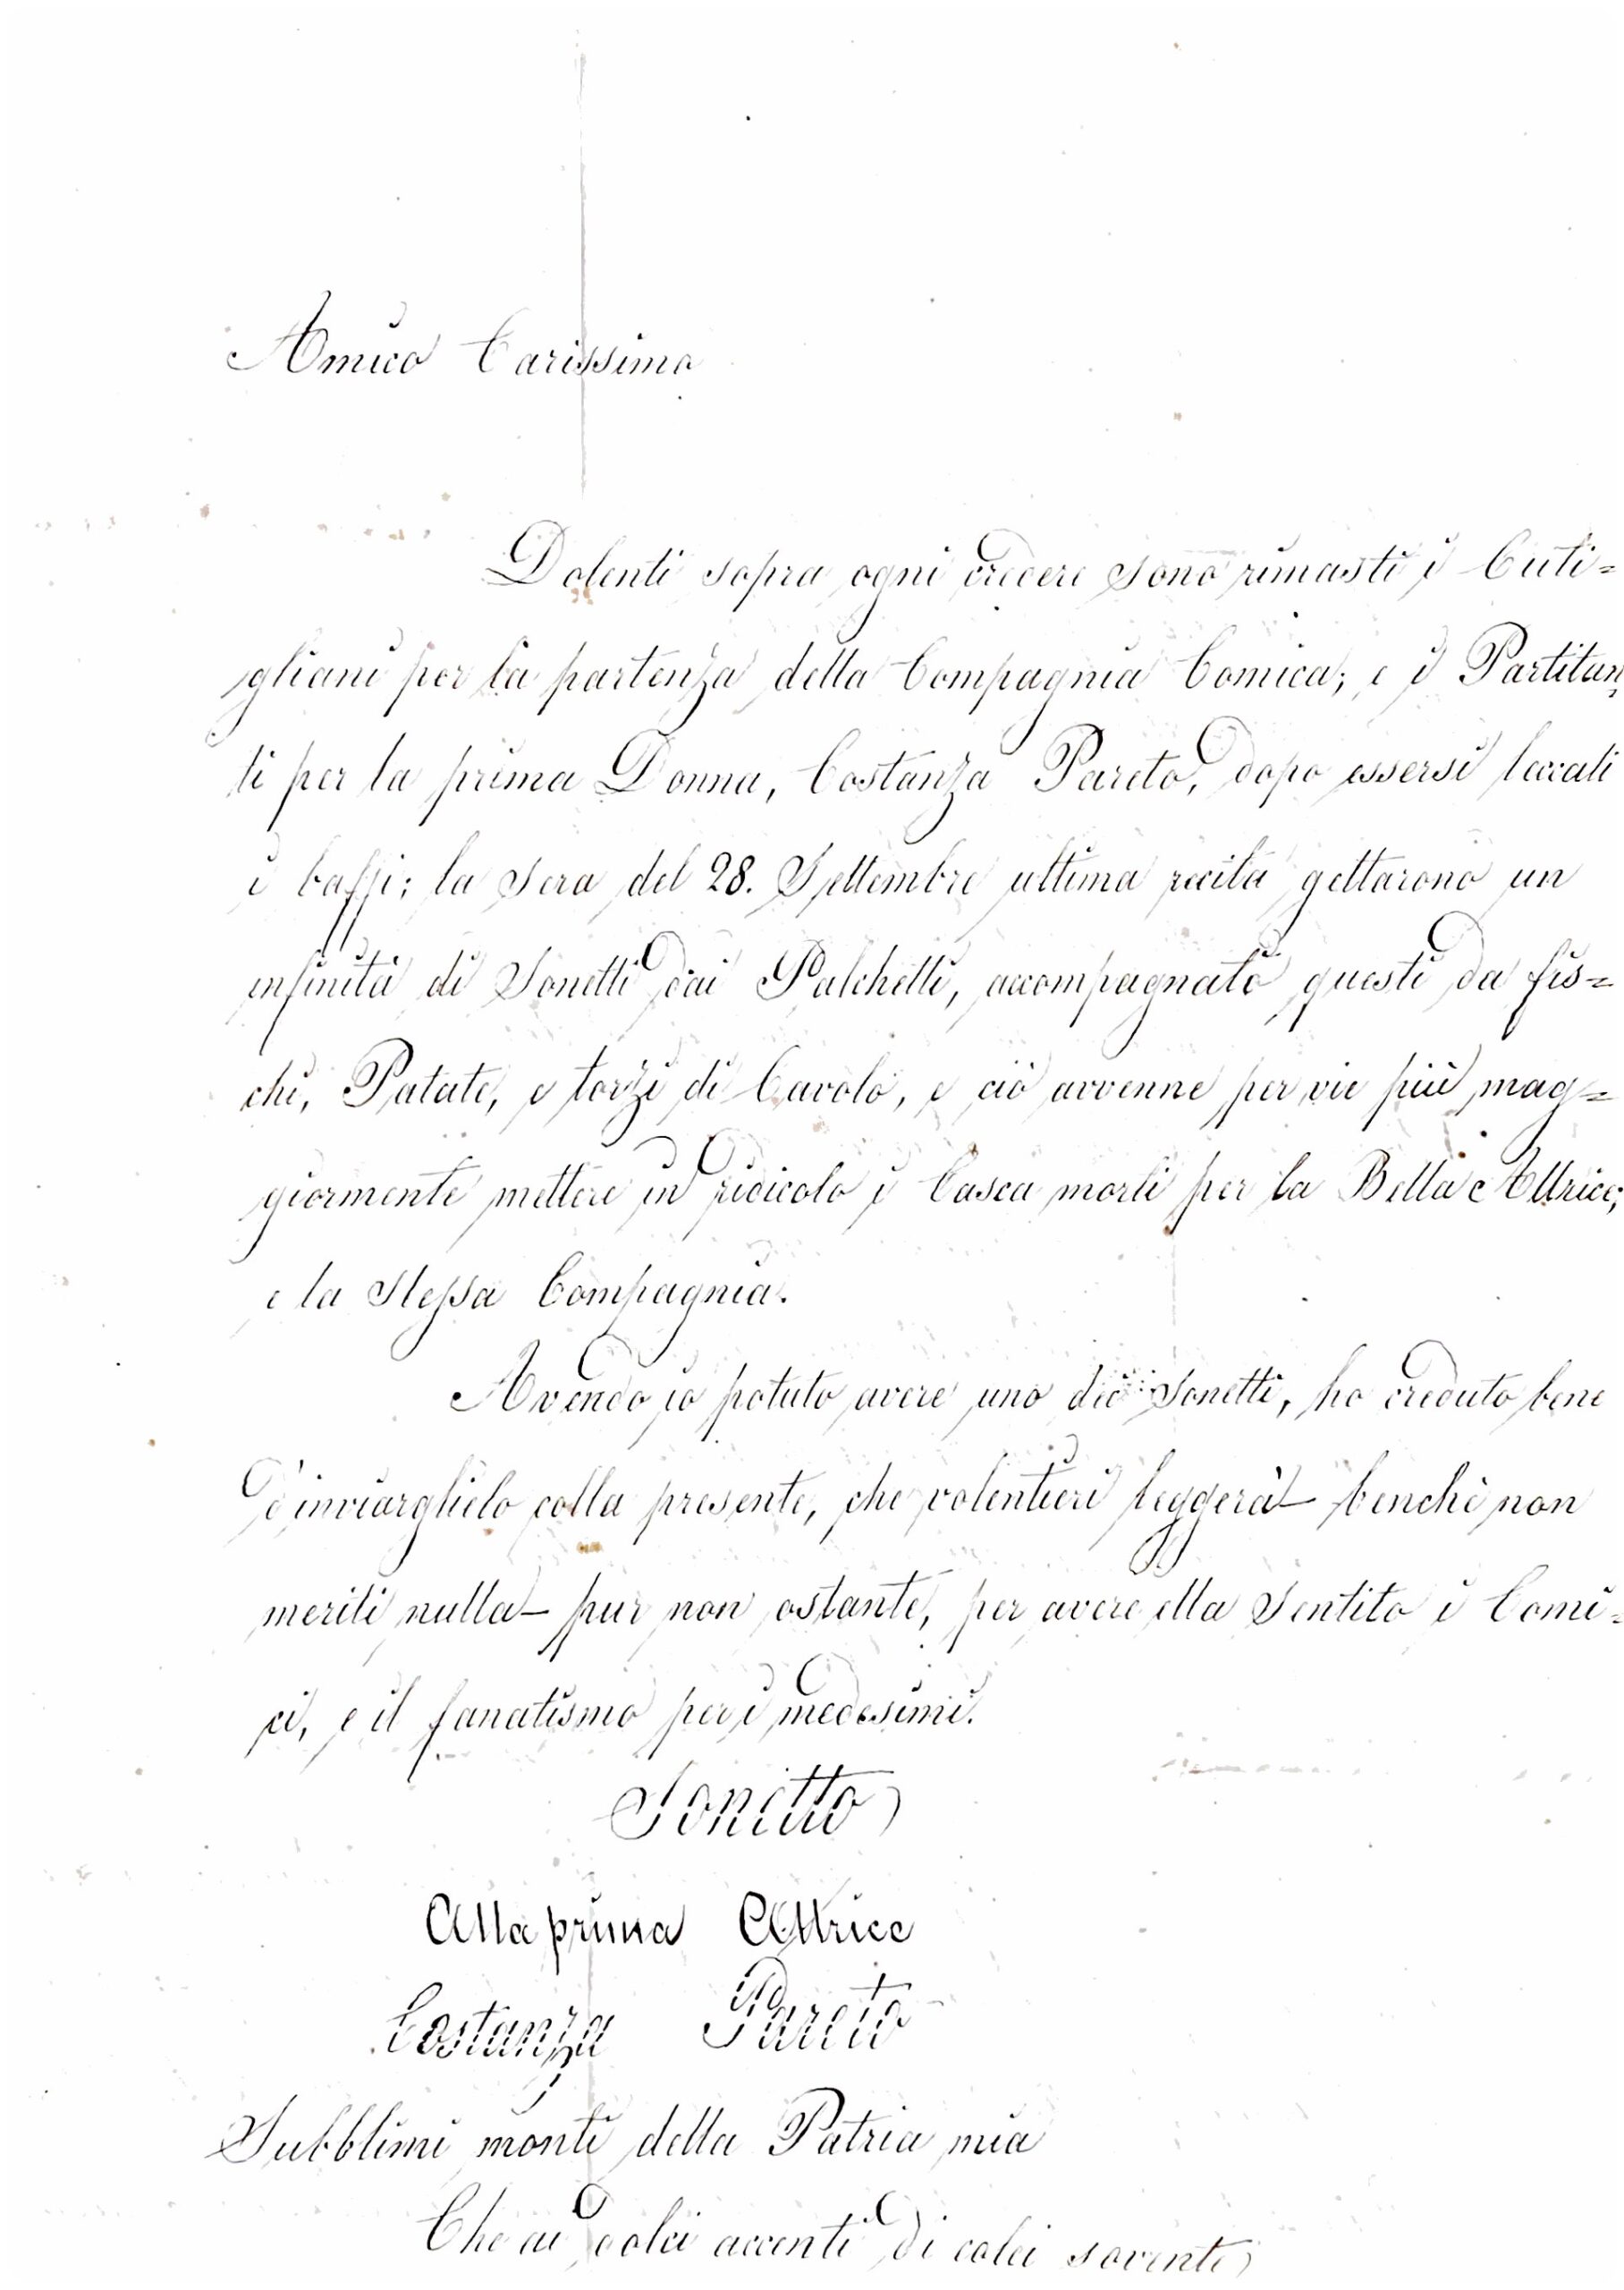 Amico Carissimo
Dolenti sopra ogni credere sono rimasti i Cuti=
gliani per la partenza della Compagnia Comica; e i Partitan
ti per la prima Donna, Costanza Pareto, dopo essersi leccati
i baffi; la sera del 28. Settembre ultima recita gettarono un
infinità di Sonetti dai Palchetti, accompagnati questi da fis=
chi, Patate, e torzi di Cavolo, e ciò avvenne per vie più mag=
giormente mettere in ridicolo i Casca morti per la Bella Attrice;
e la stessa Compagnia.
Avendo io potuto avere uno dei Sonetti, ho creduto bene
d'inviarglielo colla presente, che volentieri leggerà – benchè non
meriti nulla – pur non ostante, per avere ella Sentito i Comi=
ci, e il fanatismo per i medesimi.
Sonetto
Alla prima Attrice
Costanza Pareto
Subblimi monti della Patria mia
Che ai dolci accenti di colei sovente